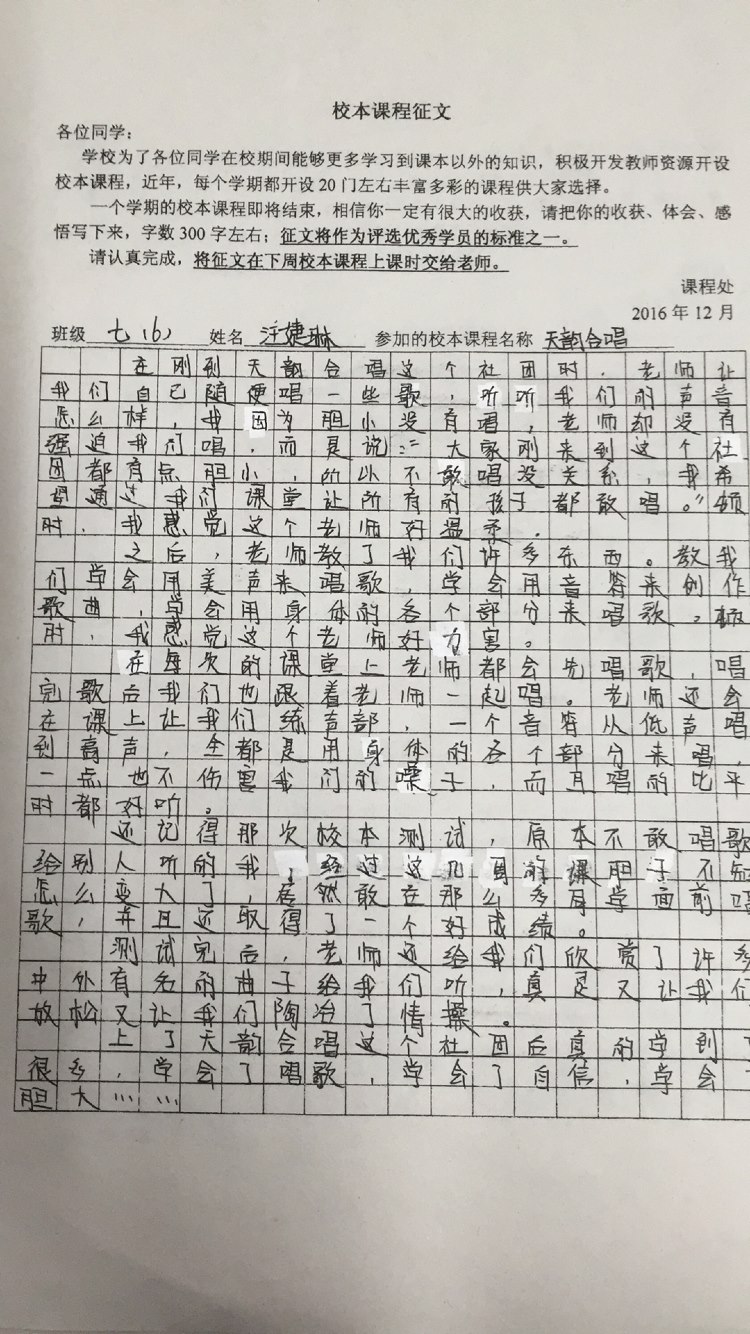 校本课程征文
各位同学：
学校为了各位同学在校期间能够更多学习到课本以外的知识，积极开发教师资源开设
校本课程，近年，每个学期都开设 20 门左右丰富多彩的课程供大家选择。
一个学期的校本课程即将结束，相信你一定有很大的收获，请把你的收获、体会、感
悟写下来，字数 300 字左右；征文将作为评选优秀学员的标准之一。
请认真完成，将征文在下周校本课程上课时交给老师。
课程处
2016 年 12 月
班级 七（6） 姓名 汪婕琳 参加的校本课程名称 天韵合唱
在刚到天韵合唱这个社团时，老师让
我们自己随便唱一些歌，听听我们的声音
怎么样，我因为胆小没有唱，老师却没有
强迫我们唱，而是说：“大家刚来到这个社
团都有点胆小，所以不敢唱没关系，我希
望通过我们课堂让所有的孩子都敢唱。”顿
时，我感觉这个老师好温柔。
之后，老师教了我们许多东西。教我
们学会用美声来唱歌，学会用音符来创作
歌曲，学会用身体的各个部分来唱歌。顿
时，我感觉这个老师好力害。
在每次的课堂上老师都会先唱歌，唱
完歌后我们也跟着老师一起唱。老师还会
在课上让我们练声部，一个音符从低声唱
到高声，全都是用身体的各个部分来唱，
一点也不伤害我们的嗓子，而且唱的比平
时都好听。
还记得那次校本测试，原本不敢唱歌
给别人听的我，经过这几周的课胆子不知
怎么变大了，居然敢在那么多同学面前唱
歌，并且还取得了一个好成绩。
测试完后，老师还给我们欣赏了许多
中外有名的曲子给我们听，真是又让我们
放松又让我们陶冶了情操。
上了天韵合唱这个社团后真的学到了
很多，学会了唱歌，学会了自信，学会了
胆大……